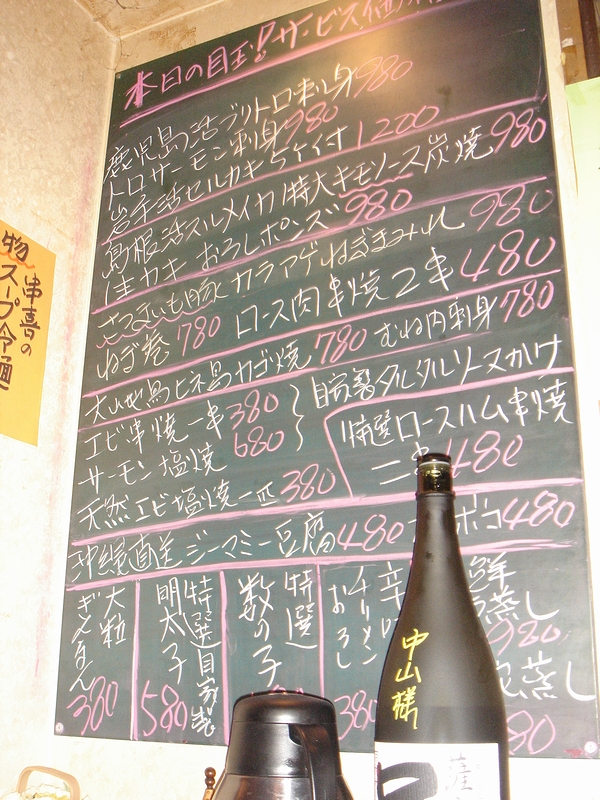 本日の目玉!サービス価格
鹿児島活ブリトロ刺身980
トロサーモン刺身980
岩手活セルカキ5ケ付1200
島根活スルメイカ特大キモソース炭焼980
佳カキおろしポンズ980
さつまいも豚カラアゲねぎまみれ980
ねぎ巻780 ロース肉串焼2串480
大山地鳥ヒネ鳥カゴ焼780 むね肉刺身780
エビ串焼一串380
サーモン塩焼680
自家製タルタルソースかけ
天然エビ塩焼一匹380
特選ロースハム串焼
二串480
沖縄直送ジーマミー豆腐480
ボコ480
大粒
ぎんなん
380
特選自家製
明太子
580
特選
数の子
チリメン
おろし
380
鮮
蒸し
980
蒸し
80
串喜の
物
スープ冷麺
中山様
薩